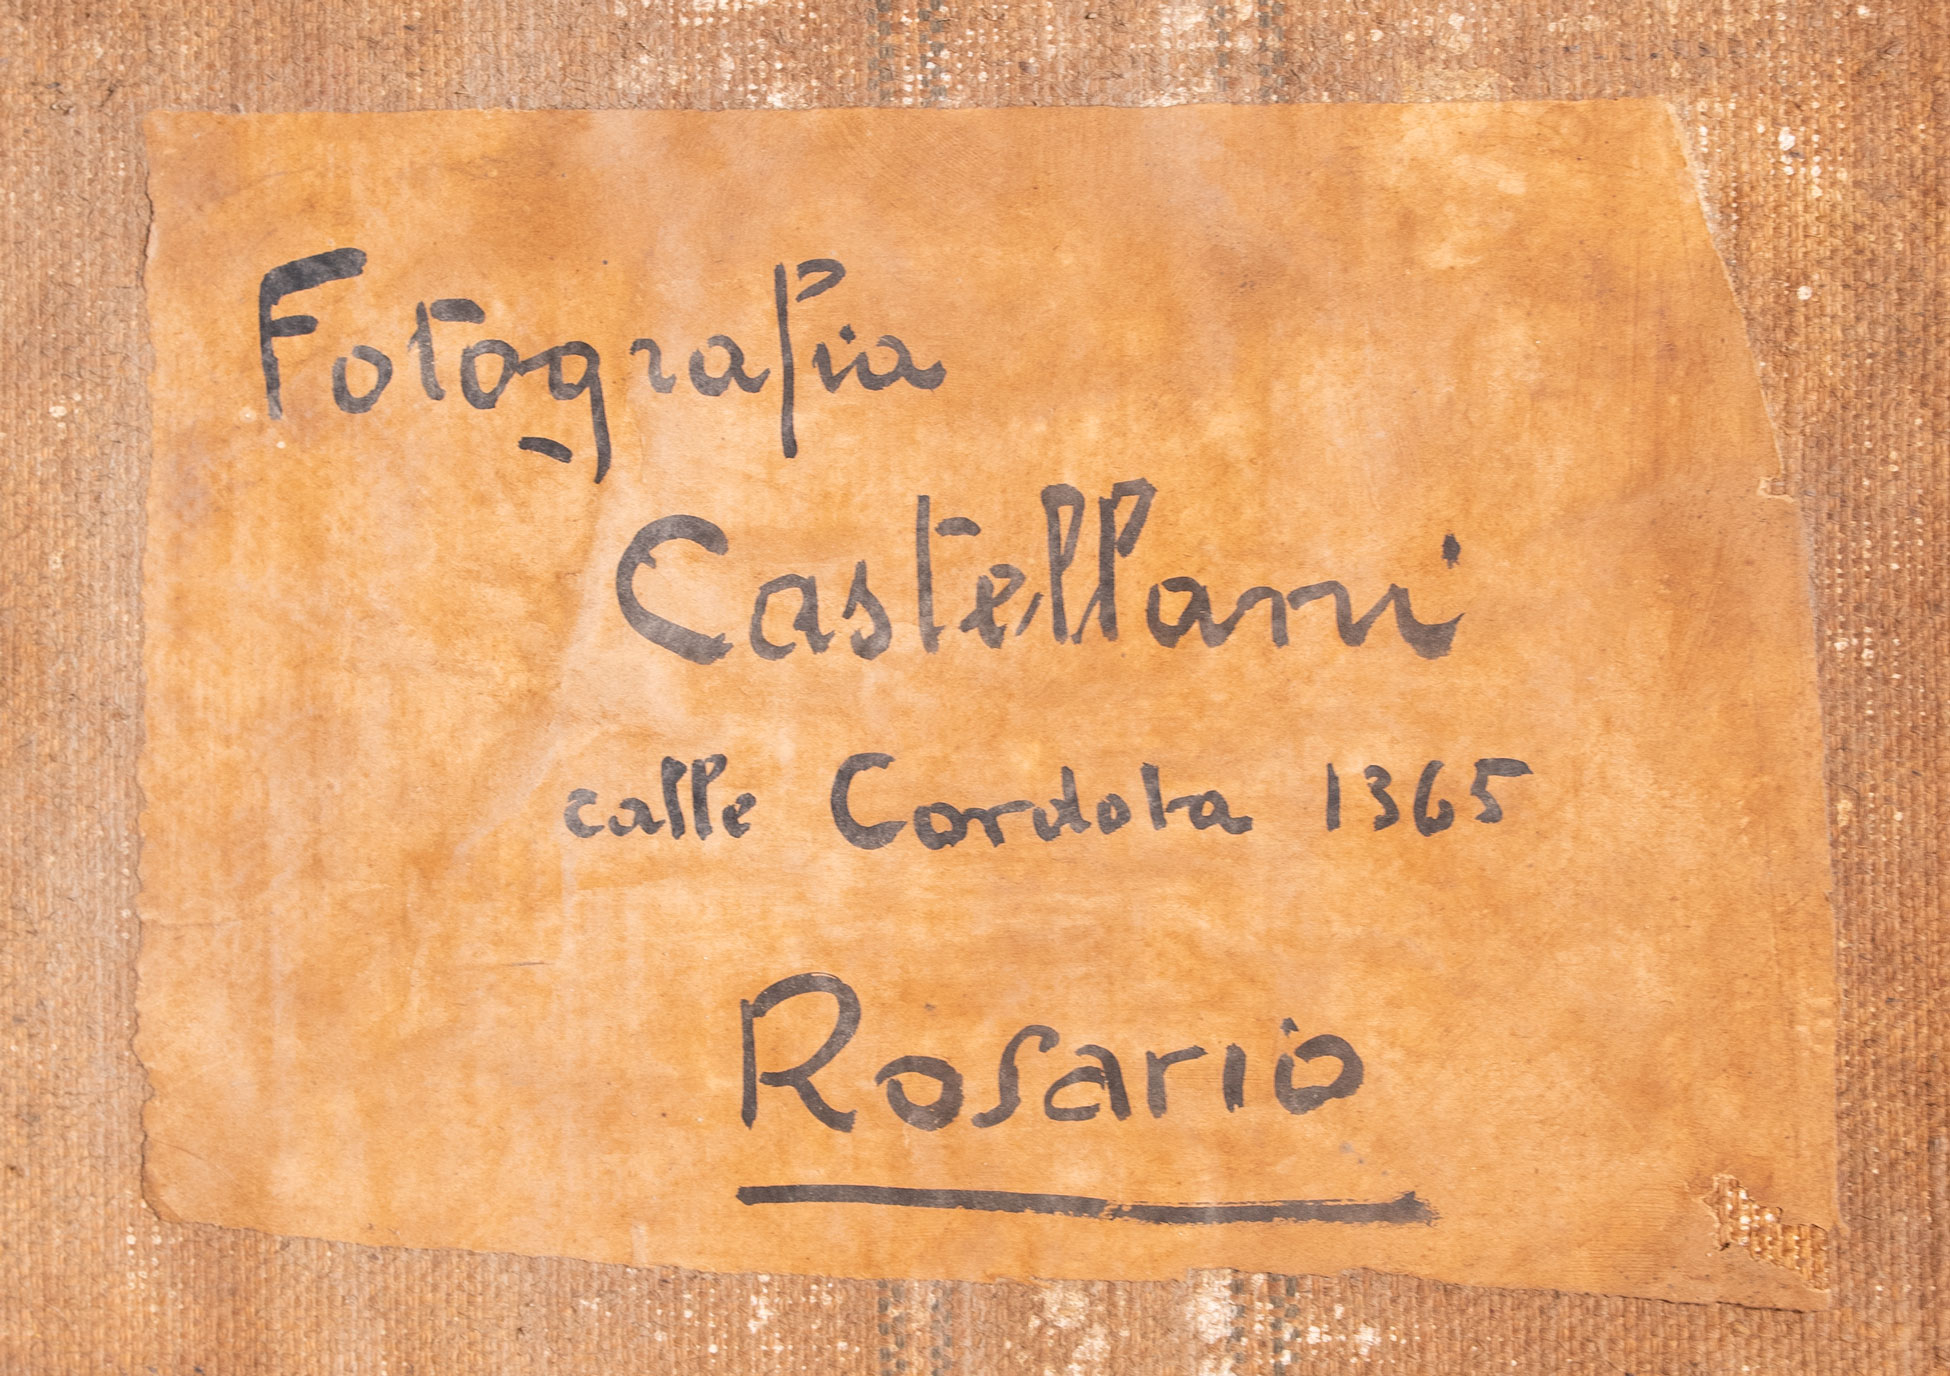 Fotografia
Castellani
calle Cordoba 1365
Rosario